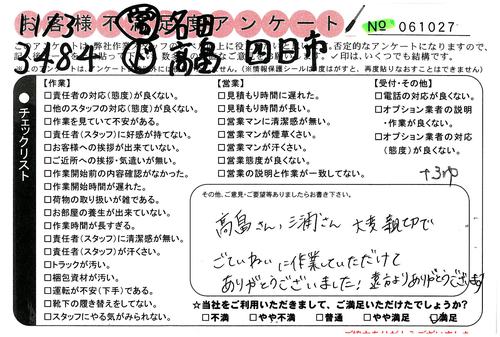 お客様不満足度アンケート
11/3 営 名田
3484 高畠 四日市
No 061027
チェックリスト
【作業】
□責任者の対応(態度)が良くない。
□他のスタッフの対応(態度)が良くない。
□作業を見ていて不安がある。
□責任者(スタッフ)に好感が持てない。
□お客様への挨拶が出来ていない。
□ご近所への挨拶・気遣いが無い。
□作業開始前の内容確認がなかった。
□作業開始時間が遅れた。
□荷物の取り扱いが雑である。
□お部屋の養生が出来ていない。
□作業時間が長すぎる。
□責任者(スタッフ)に清潔感が無い。
□責任者(スタッフ)が汗くさい。
□トラックが汚い。
□梱包資材が汚い。
□運転が不安(下手)である。
□靴下の履き替えをしてない。
□スタッフにやる気がみられない。
【営業】
□見積もり時間に遅れた。
□見積もり時間が長い。
□営業マンに清潔感が無い。
□営業マンが煙草くさい。
□営業マンが汗くさい。
□営業態度が良くない。
□営業の説明と作業が一致してない。
【受付・その他】
□電話の対応が良くない。
□オプション業者の説明
・作業が良くない。
□オプション業者の対応
(態度)が良くない。
その他、ご意見・ご要望等ありましたらお書き下さい。
高畠さん、三浦さん 大変親切で
ていねいに作業していただけて
ありがとうございました!遠方よりありがとうございます
☆当社をご利用いただきまして、ご満足いただけたでしょうか?
□不満 □やや不満 □普通 □やや満足 □満足